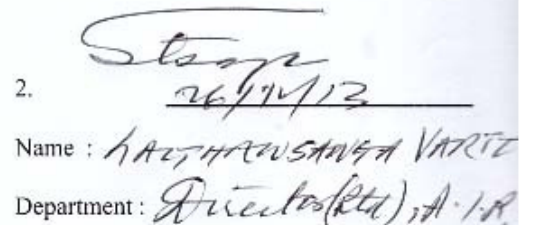 2. 26/12/13
Name : LALTHANSANGA VARTE
Department : Director (Rtd), A.I.R